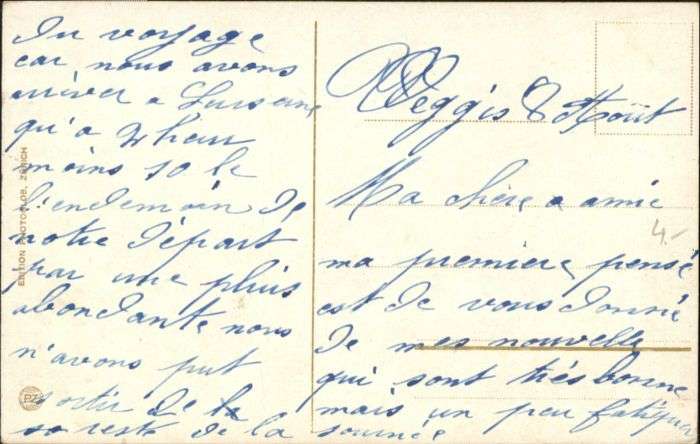 Weggis 8 Août
Ma chère amie
ma premiere pensé
est de vous donné
de mes nouvelle
qui sont très bonne
mais un peu fatiguer
du voyage
car nous avons
arriver a
qu'a heur
moins 10 le
l'endemain de
notre départ
par une pluis
abondante nous
n'avons put
sortir de la
so reste de la
journée
4.-
EDITION PHOTOGLOB, ZÜRICH
PZ